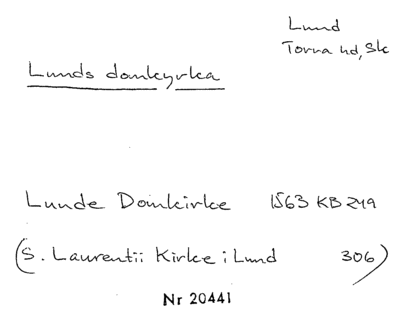 Lund
Torna hd, Sk
Lunds domkyrka
Lunde Domkirke 1563 KB 249
(S. Laurentii Kirke i Lund 306)
Nr 20441